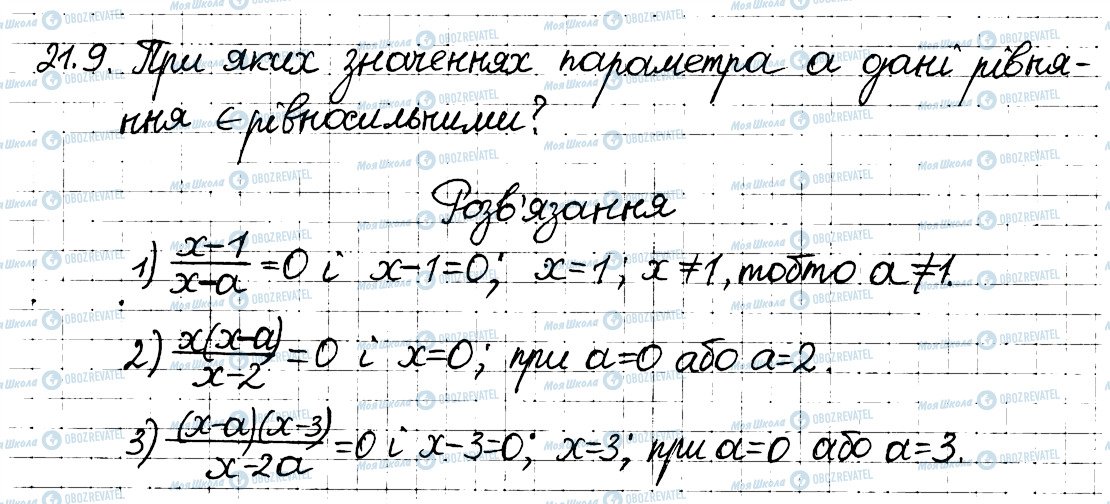 21.9. При яких значеннях параметра а дані рівня-
ння є рівносильними?
Розв'язання
1) \frac{x-1}{x-a}=0 і x-1=0; x=1; x≠1, тобто a≠1.
2) \frac{x(x-a)}{x-2}=0 і x=0; при a=0 або a=2.
3) \frac{(x-a)(x-3)}{x-2a}=0 і x-3=0; x=3; при a=0 або a=3.
МояШкола OBOZREVATEL